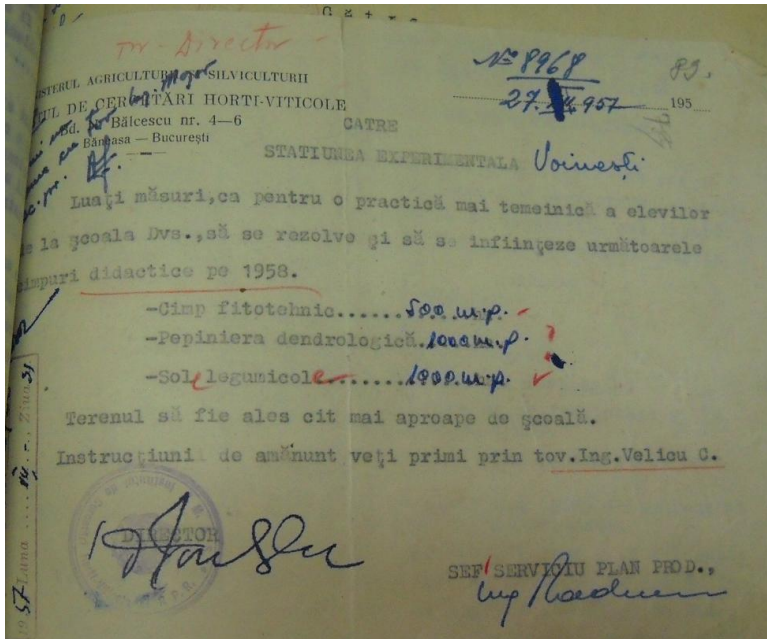 Către
tov. Director -
Nº 8968
89.
MINISTERUL AGRICULTURII SILVICULTURII
INSTITUTUL DE CERCETĂRI HORTI-VITICOLE
27. 957 195
Bd. Bălcescu nr. 4—6
Băneasa — București
CATRE
STATIUNEA EXPERIMENTALA Voinești
Luați măsuri,ca pentru o practică mai temeinică a elevilor
de la școala Dvs.,să se rezolve și să se inființeze următoarele
cimpuri didactice pe 1958.
-Cimp fitotehnic...... 500 m.p.
-Pepiniera dendrologică. 1000 m.p.
-Sole legumicole....... 1000 m.p.
Terenul să fie ales cit mai aproape de școală.
Instrucțiuni de amănunt veți primi prin tov.Ing.Velicu C.
DIRECTOR
SEF SERVICIU PLAN PROD.,
ing
1957 Luna Ziua 31